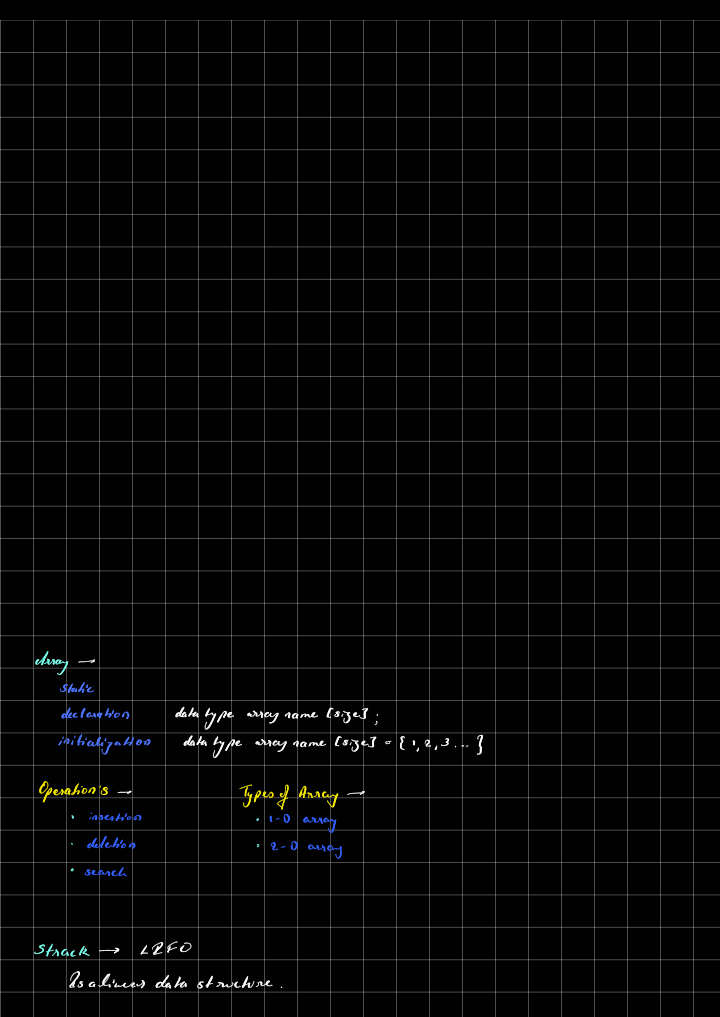 Array →
static
declaration data type array name [size] ;
initialization data type array name [size] = { 1, 2, 3 ... }
Operation's → Types of Array →
· insertion · 1-D array
· deletion · 2-D array
· search
Strack → LIFO
Is a linear data structure.